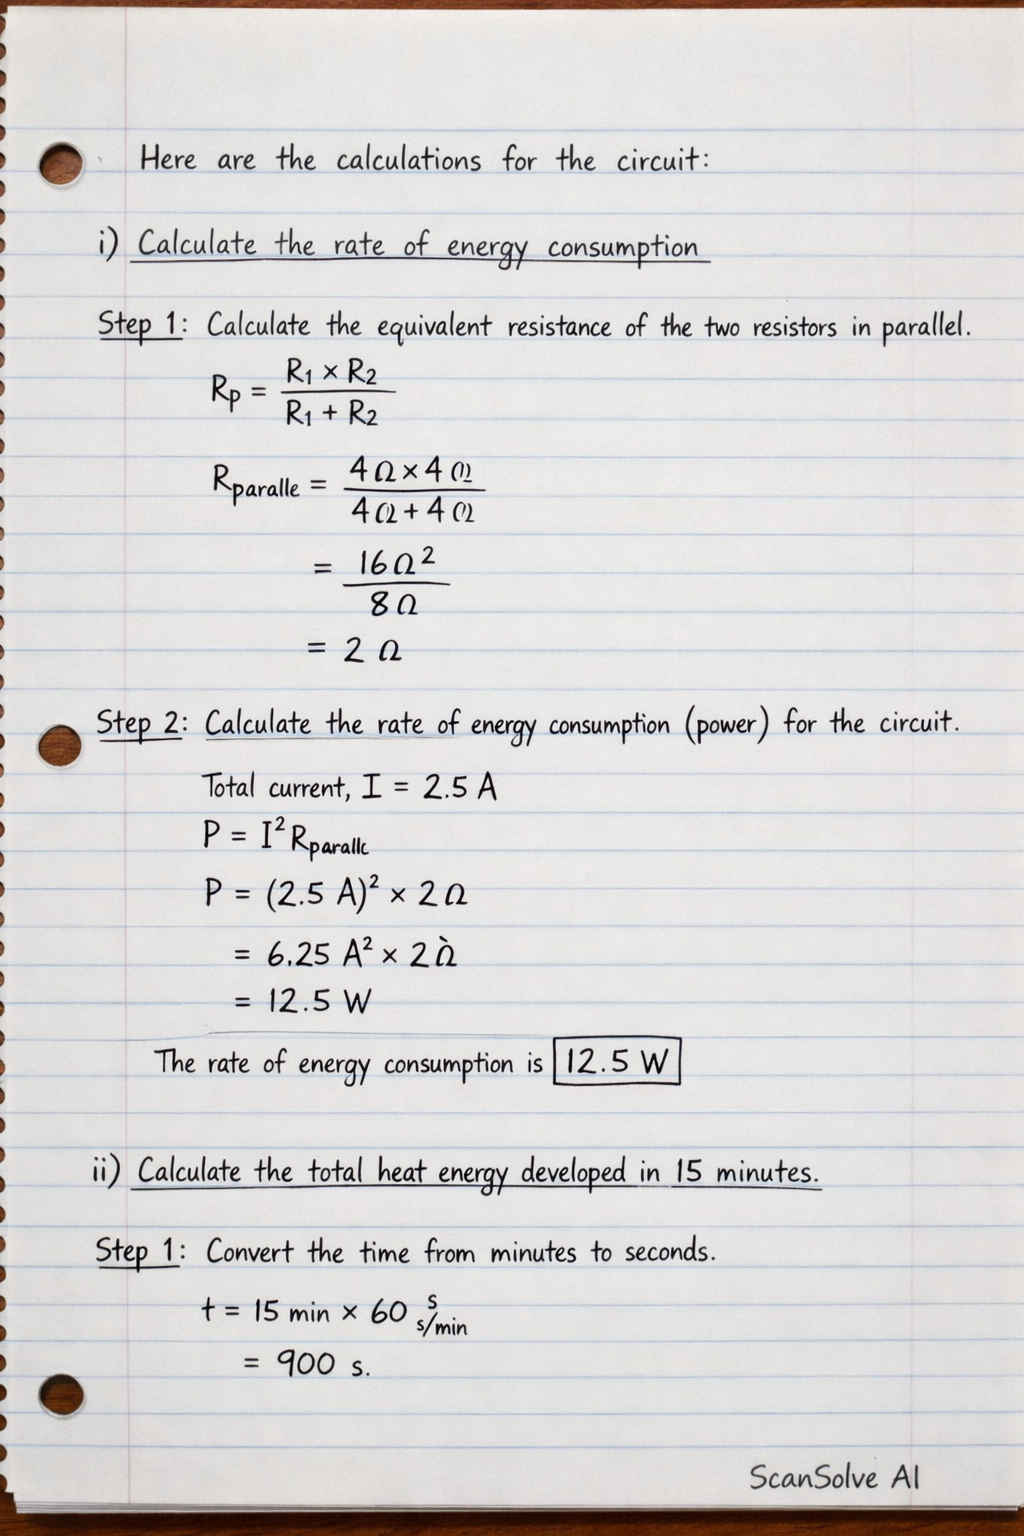 Here are the calculations for the circuit:
i) Calculate the rate of energy consumption
Step 1: Calculate the equivalent resistance of the two resistors in parallel.
Rp = R1 × R2 / R1 + R2
Rparalle = 4 Ω × 4 Ω / 4 Ω + 4 Ω
= 16 Ω² / 8 Ω
= 2 Ω
Step 2: Calculate the rate of energy consumption (power) for the circuit.
Total current, I = 2.5 A
P = I² Rparallc
P = (2.5 A)² × 2 Ω
= 6.25 A² × 2 Ω
= 12.5 W
The rate of energy consumption is 12.5 W
ii) Calculate the total heat energy developed in 15 minutes.
Step 1: Convert the time from minutes to seconds.
t = 15 min × 60 s s/min
= 900 s.
ScanSolve AI